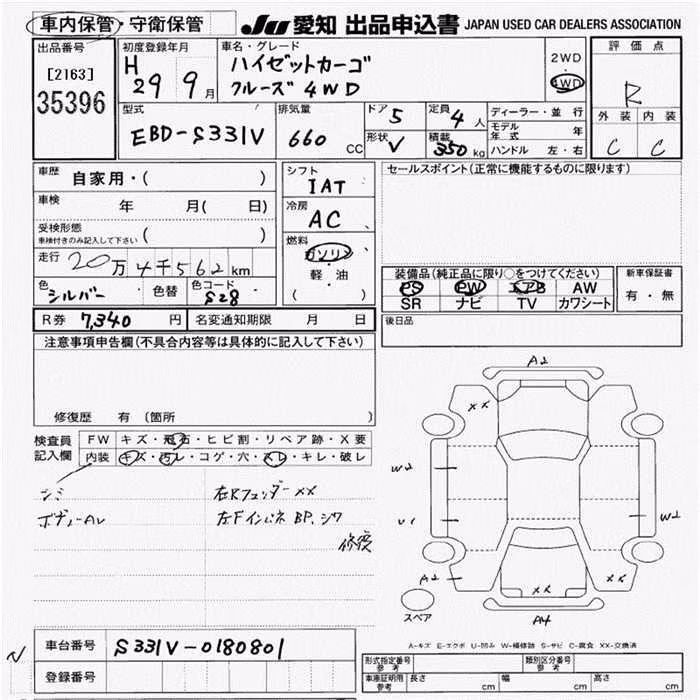 車内保管・守衛保管 JU 愛知 出品申込書 JAPAN USED CAR DEALERS ASSOCIATION
出品番号
[2163]
35396
初度登録年月
H 29 9月
車名・グレード
ハイゼットカーゴ
クルーズ 4WD
2WD
4WD
評価点
R
外装 内装
C C
型式
EBD-S331V
排気量
660 cc
ドア 5
形状 V
定員 4人
積載 350 kg
ディーラー・並行
モデル年式 年
ハンドル 左・右
車歴 自家用・( )
車検 年 月( 日)
受検形態
車検付きのみ記入して下さい ( )
走行 20万4千562km
色 シルバー 色替 色コード S28
シフト
IAT
冷房
AC
燃料
ガソリン
軽・油
( )
セールスポイント(正常に機能するものに限ります)
装備品(純正品に限り○をつけてください)
PS PW エアB AW
SR ナビ TV カワシート
新車保証書
有・無
R券 7,340円 名変通知期限 月 日
後日品
注意事項申告欄(不具合内容等は具体的に記入して下さい)
修復歴 有 〔箇所 〕
検査員記入欄
FW キズ・飛石・ヒビ割・リペア跡・X要
内装 キズ・汚レ・コゲ・穴・スレ・キレ・破レ
シミ
ボデーAレ
右Rフェンダー XX
左Fインパネ BP.シワ
修復
A2
XX
W2
U1
W2
A2
XX
XX
A4
スペア
A-キズ E-エクボ U-凹み W-補修跡 S-サビ C-腐食 XX-交換済
車台番号 S331V-0180801
登録番号
型式指定番号 参考
類別区分番号 参考
車庫証明用 参考
長さ cm 幅 cm 高さ cm